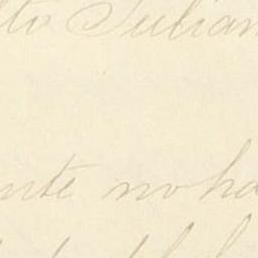 lto Julian
nte no ha